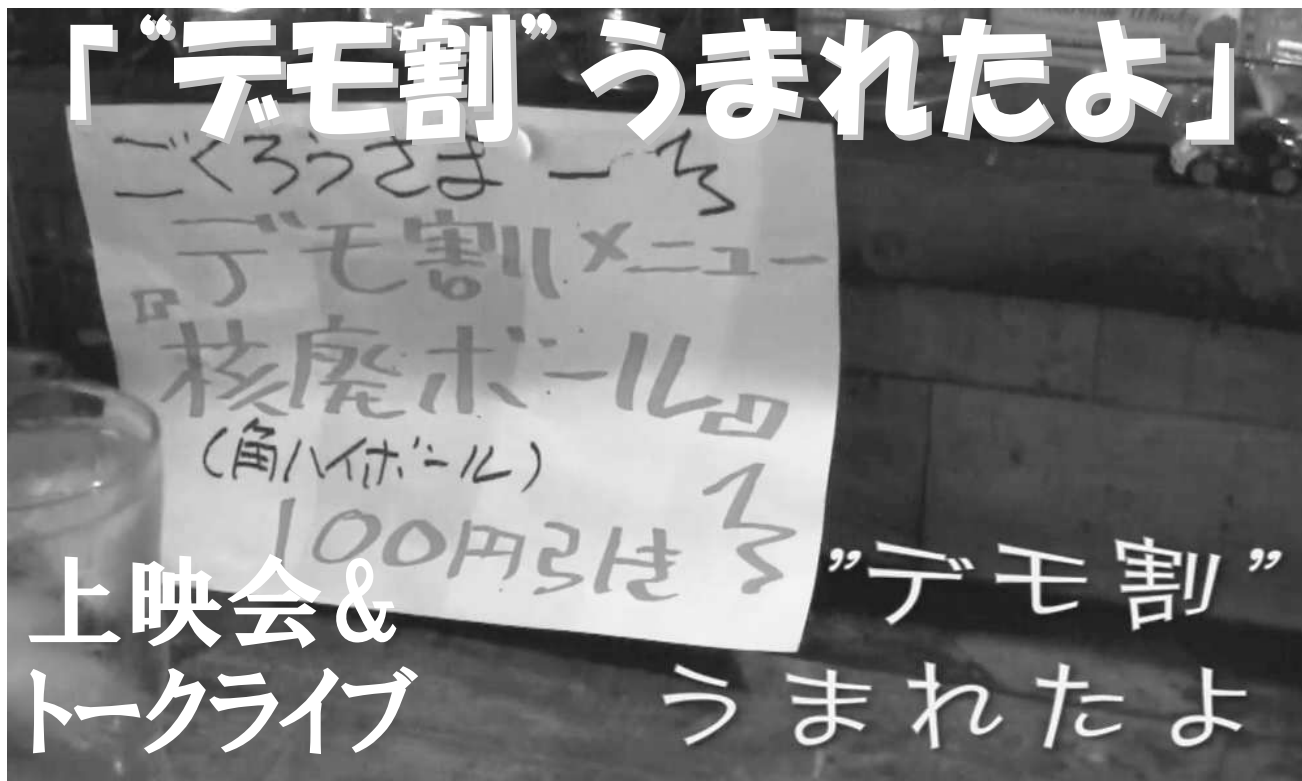 「“デモ割”うまれたよ」
ごくろうさまー
デモ割メニュー
『核廃ボール』
(角ハイボール)
100円引き
上映会&
トークライブ
”デモ割”
うまれたよ